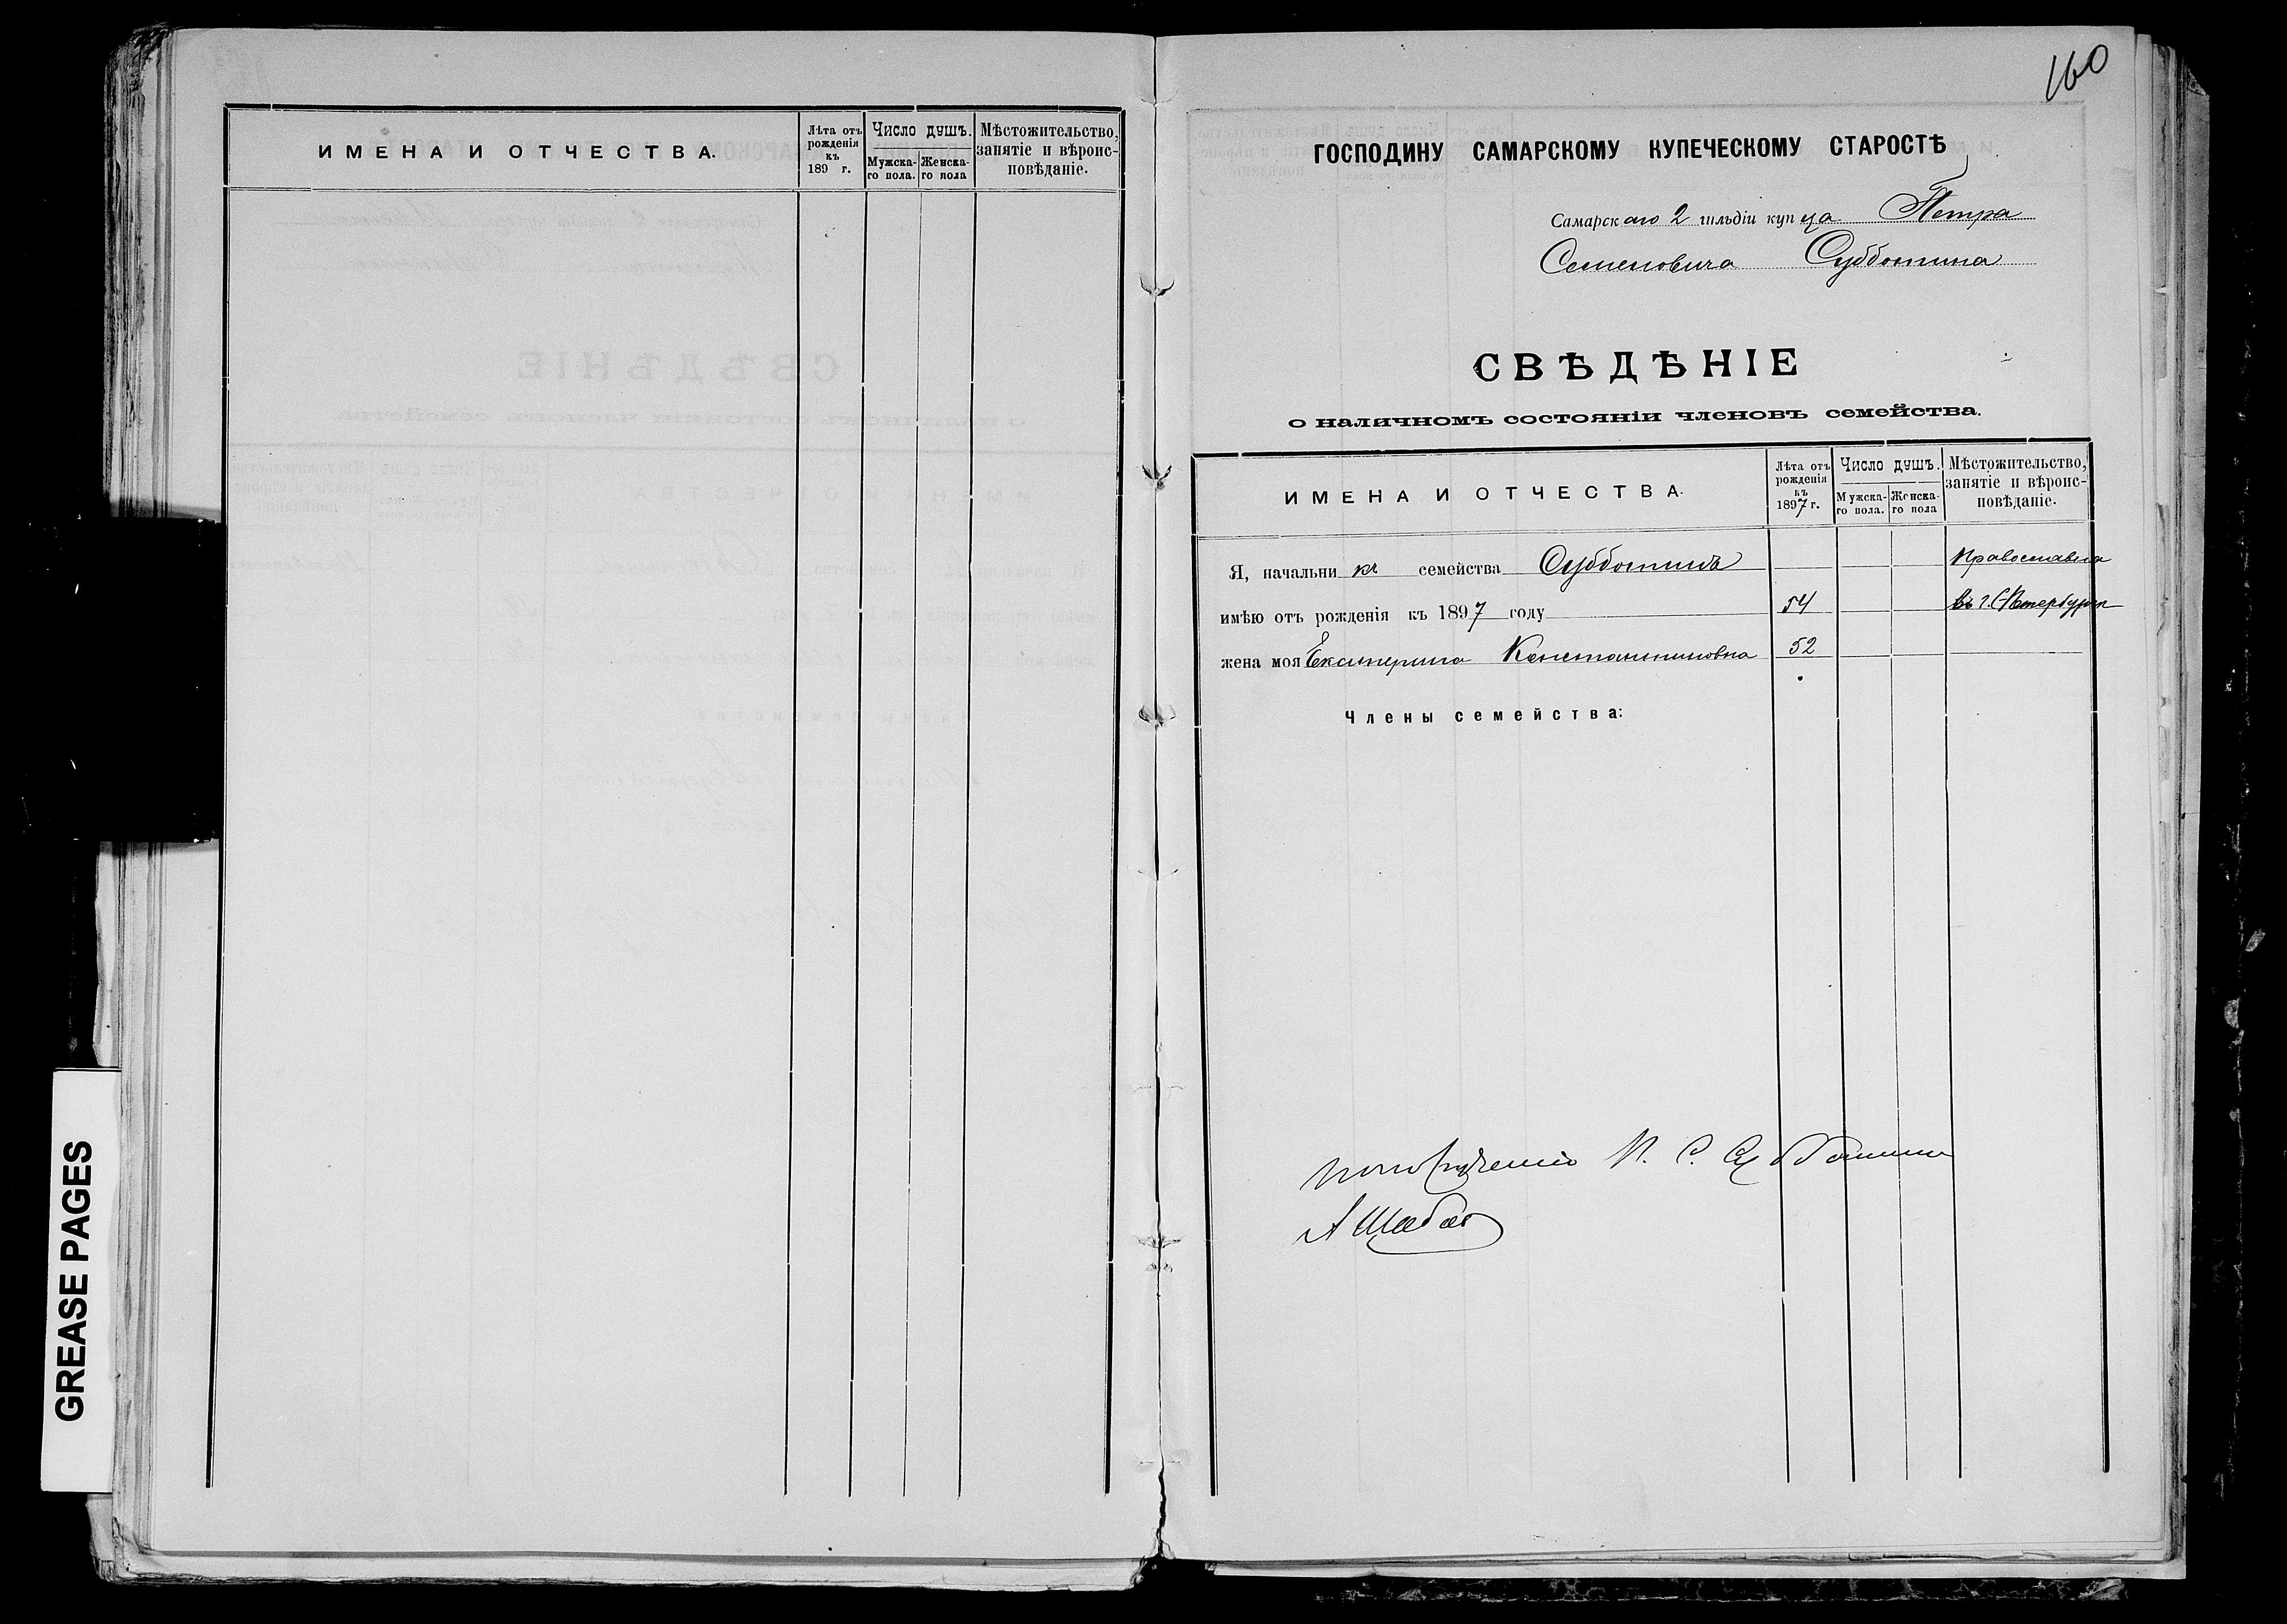 ИМЕНА И ОТЧЕСТВА.
Лѣта отъ рожденія къ 189 г.
Число душъ.
Мужска-
го пола.
Женска-
го пола
Мѣстожительство,
занятіе и вѣроис-
повѣданіе.
160
ГОСПОДИНУ САМАРСКОМУ КУПЕЧЕСКОМУ СТАРОСТѢ
Самарскаго 2 гильдіи купца Петра
Семеновича Субботина
СВѢДѢНІЕ
о наличномъ состояніи членовъ семейства.
ИМЕНА И ОТЧЕСТВА.
Лѣта отъ
рожденія
къ
1897 г.
Число душъ.
Мужска-
го пола.
Женска-
го пола
Мѣстожительство,
занятіе и вѣроис-
повѣданіе.
Я, начальникъ семейства Субботинъ Православна
имѣю отъ рожденія къ 1897 году 54 въ г. С-Петербургѣ
жена моя Екатерина Константиновна 52
Члены семейства:
П. С. Субботина
GREASE PAGES